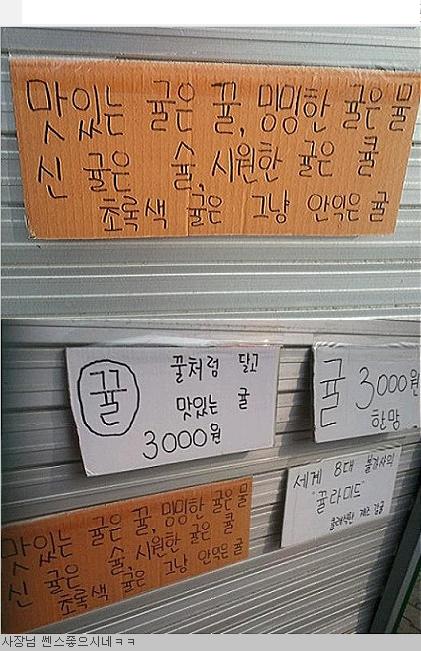 맛있는 귤은 꿀, 밍밍한 귤은 물
신 귤은 술, 시원한 귤은 쿨
초록색 귤은 그냥 안익은 귤
꿀
꿀처럼 달고
맛있는 귤
3000원
귤 3000원
한망
세계 8대 불가사의
"귤라미드"
제주 감귤
맛있는 귤은 꿀, 밍밍한 귤은 물
신 귤은 술, 시원한 귤은 쿨
초록색 귤은 그냥 안익은 귤
사장님 쎈스좋으시네ㅋㅋ